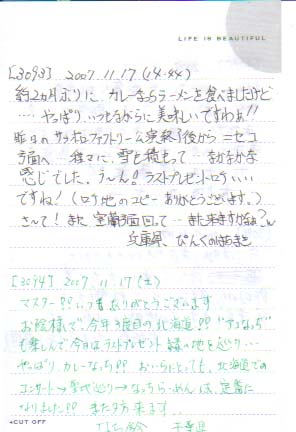 LIFE IS BEAUTIFUL
[3093] 2007.11.17 (14:44)
約2ヵ月ぶりに、カレーなっちラーメンを食べましたけど
… やっぱり、いつもながらに美味しいですわぁ!!
昨日のサッポロファクトリー公演終了後から ニセコ
方面へ 徐々に、雪も積もって
感じでした。う〜ん! ラストプレゼントロケ
ですね! (ロケ地のコピー ありがとうございます。)
さ〜て! また 室蘭 回って‥また来ますけどね?
兵庫県、ぴんくの
[3094] 2007.11.17 (土)
マスター!! いつもありがとうございます
お陰様で、今年3度目の北海道!! "なっち"
も楽しんで今日はラストプレゼント 縁の地を巡り…
やっぱりカレーなっち!! おいらにとっても、北海道での
コンサート→聖地巡り→なっちらーめん は、定番に
なりました!! また夕方来ます…
千葉県
◂CUT OFF